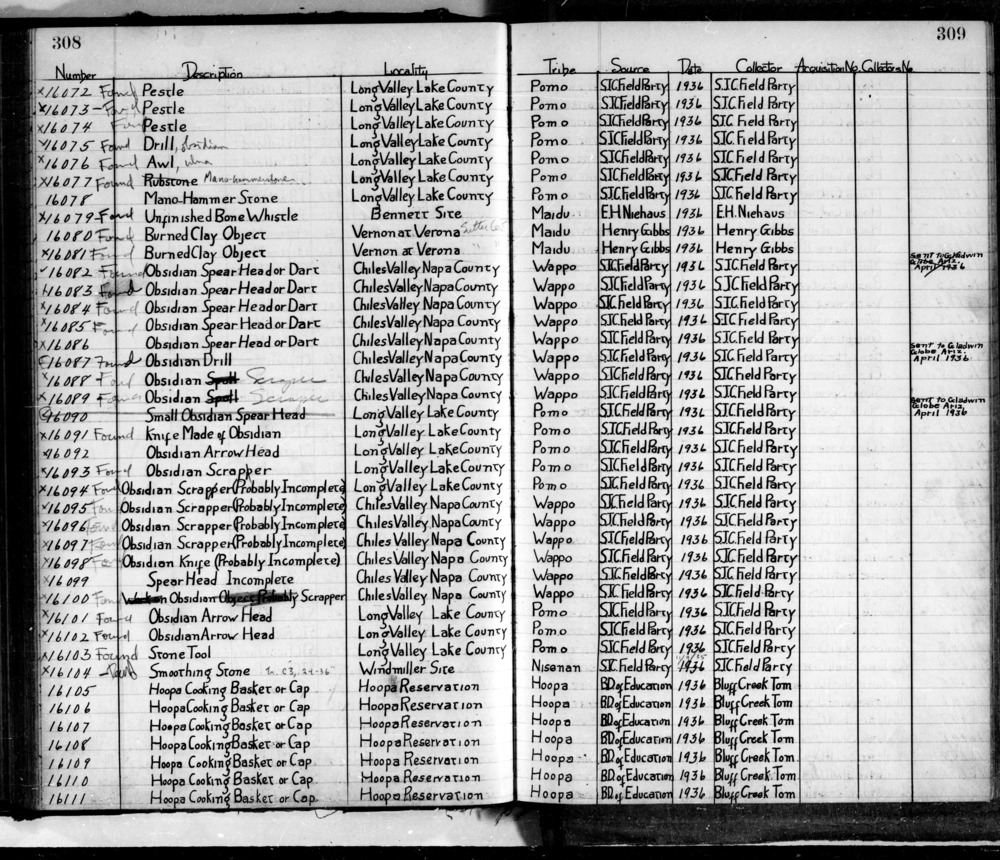 308
309
Number Description Locality Tribe Source Date Collector Acquisition No. Collectors No.
x16072 Found Pestle Long Valley Lake County Pomo S.J.C. Field Party 1936 S.J.C. Field Party
x16073 - Found Pestle Long Valley Lake County Pomo S.J.C. Field Party 1936 S.J.C. Field Party
x16074 Found Pestle Long Valley Lake County Pomo S.J.C. Field Party 1936 S.J.C. Field Party
x16075 Found Drill, obsidian Long Valley Lake County Pomo S.J.C. Field Party 1936 S.J.C. Field Party
x16076 Found Awl, ulna Long Valley Lake County Pomo S.J.C. Field Party 1936 S.J.C. Field Party
x16077 Found Rubstone Mano-hammerstone Long Valley Lake County Pomo S.J.C. Field Party 1936 S.J.C. Field Party
16078 Mano-Hammer Stone Long Valley Lake County Pomo S.J.C. Field Party 1936 S.J.C. Field Party
x16079 - Found Unfinished Bone Whistle Bennett Site Maidu E.H. Niehaus 1936 E.H. Niehaus
16080 Found Burned Clay Object Vernon at Verona Sutter Co. Maidu Henry Gibbs 1936 Henry Gibbs
x16081 Found Burned Clay Object Vernon at Verona " " Maidu Henry Gibbs 1936 Henry Gibbs
16082 Found Obsidian Spear Head or Dart Chiles Valley Napa County Wappo S.J.C. Field Party 1936 S.J.C. Field Party Sent to Gladwin Globe Ariz. April 1936
16083 Found Obsidian Spear Head or Dart Chiles Valley Napa County Wappo S.J.C. Field Party 1936 S.J.C. Field Party
x16084 Found Obsidian Spear Head or Dart Chiles Valley Napa County Wappo S.J.C. Field Party 1936 S.J.C. Field Party
x16085 Found Obsidian Spear Head or Dart Chiles Valley Napa County Wappo S.J.C. Field Party 1936 S.J.C. Field Party
x16086 Obsidian Spear Head or Dart Chiles Valley Napa County Wappo S.J.C. Field Party 1936 S.J.C. Field Party Sent to Gladwin Globe Ariz. April 1936
16087 Found Obsidian Drill Chiles Valley Napa County Wappo S.J.C. Field Party 1936 S.J.C. Field Party
x16088 Found Obsidian Spall Scraper Chiles Valley Napa County Wappo S.J.C. Field Party 1936 S.J.C. Field Party
x16089 Found Obsidian Spall Scraper Chiles Valley Napa County Wappo S.J.C. Field Party 1936 S.J.C. Field Party Sent to Gladwin Globe Ariz. April 1936
16090 Small Obsidian Spear Head Long Valley Lake County Pomo S.J.C. Field Party 1936 S.J.C. Field Party
x16091 Found Knife Made of Obsidian Long Valley Lake County Pomo S.J.C. Field Party 1936 S.J.C. Field Party
16092 Obsidian Arrow Head Long Valley Lake County Pomo S.J.C. Field Party 1936 S.J.C. Field Party
x16093 Found Obsidian Scrapper Long Valley Lake County Pomo S.J.C. Field Party 1936 S.J.C. Field Party
x16094 Found Obsidian Scrapper (Probably Incomplete) Long Valley Lake County Pomo S.J.C. Field Party 1936 S.J.C. Field Party
x16095 Found Obsidian Scrapper (Probably Incomplete) Chiles Valley Napa County Wappo S.J.C. Field Party 1936 S.J.C. Field Party
x16096 Found Obsidian Scrapper (Probably Incomplete) Chiles Valley Napa County Wappo S.J.C. Field Party 1936 S.J.C. Field Party
x16097 Found Obsidian Scrapper (Probably Incomplete) Chiles Valley Napa County Wappo S.J.C. Field Party 1936 S.J.C. Field Party
x16098 Found Obsidian Knife (Probably Incomplete) Chiles Valley Napa County Wappo S.J.C. Field Party 1936 S.J.C. Field Party
x16099 Spear Head Incomplete Chiles Valley Napa County Wappo S.J.C. Field Party 1936 S.J.C. Field Party
x16100 Found Obsidian Object Probably Scrapper Chiles Valley Napa County Wappo S.J.C. Field Party 1936 S.J.C. Field Party
x16101 Found Obsidian Arrow Head Long Valley Lake County Pomo S.J.C. Field Party 1936 S.J.C. Field Party
x16102 Found Obsidian Arrow Head Long Valley Lake County Pomo S.J.C. Field Party 1936 S.J.C. Field Party
x16103 Found Stone Tool Long Valley Lake County Pomo S.J.C. Field Party 1936 S.J.C. Field Party
x16104 - Found Smoothing Stone Windmiller Site Nisenan S.J.C. Field Party 1936 S.J.C. Field Party
16105 Hoopa Cooking Basket or Cap Hoopa Reservation Hoopa BD. of Education 1936 Bluff Creek Tom
16106 Hoopa Cooking Basket or Cap Hoopa Reservation Hoopa BD. of Education 1936 Bluff Creek Tom
16107 Hoopa Cooking Basket or Cap Hoopa Reservation Hoopa BD. of Education 1936 Bluff Creek Tom
16108 Hoopa Cooking Basket or Cap Hoopa Reservation Hoopa BD. of Education 1936 Bluff Creek Tom
16109 Hoopa Cooking Basket or Cap Hoopa Reservation Hoopa BD. of Education 1936 Bluff Creek Tom
16110 Hoopa Cooking Basket or Cap Hoopa Reservation Hoopa BD. of Education 1936 Bluff Creek Tom
16111 Hoopa Cooking Basket or Cap Hoopa Reservation Hoopa BD. of Education 1936 Bluff Creek Tom